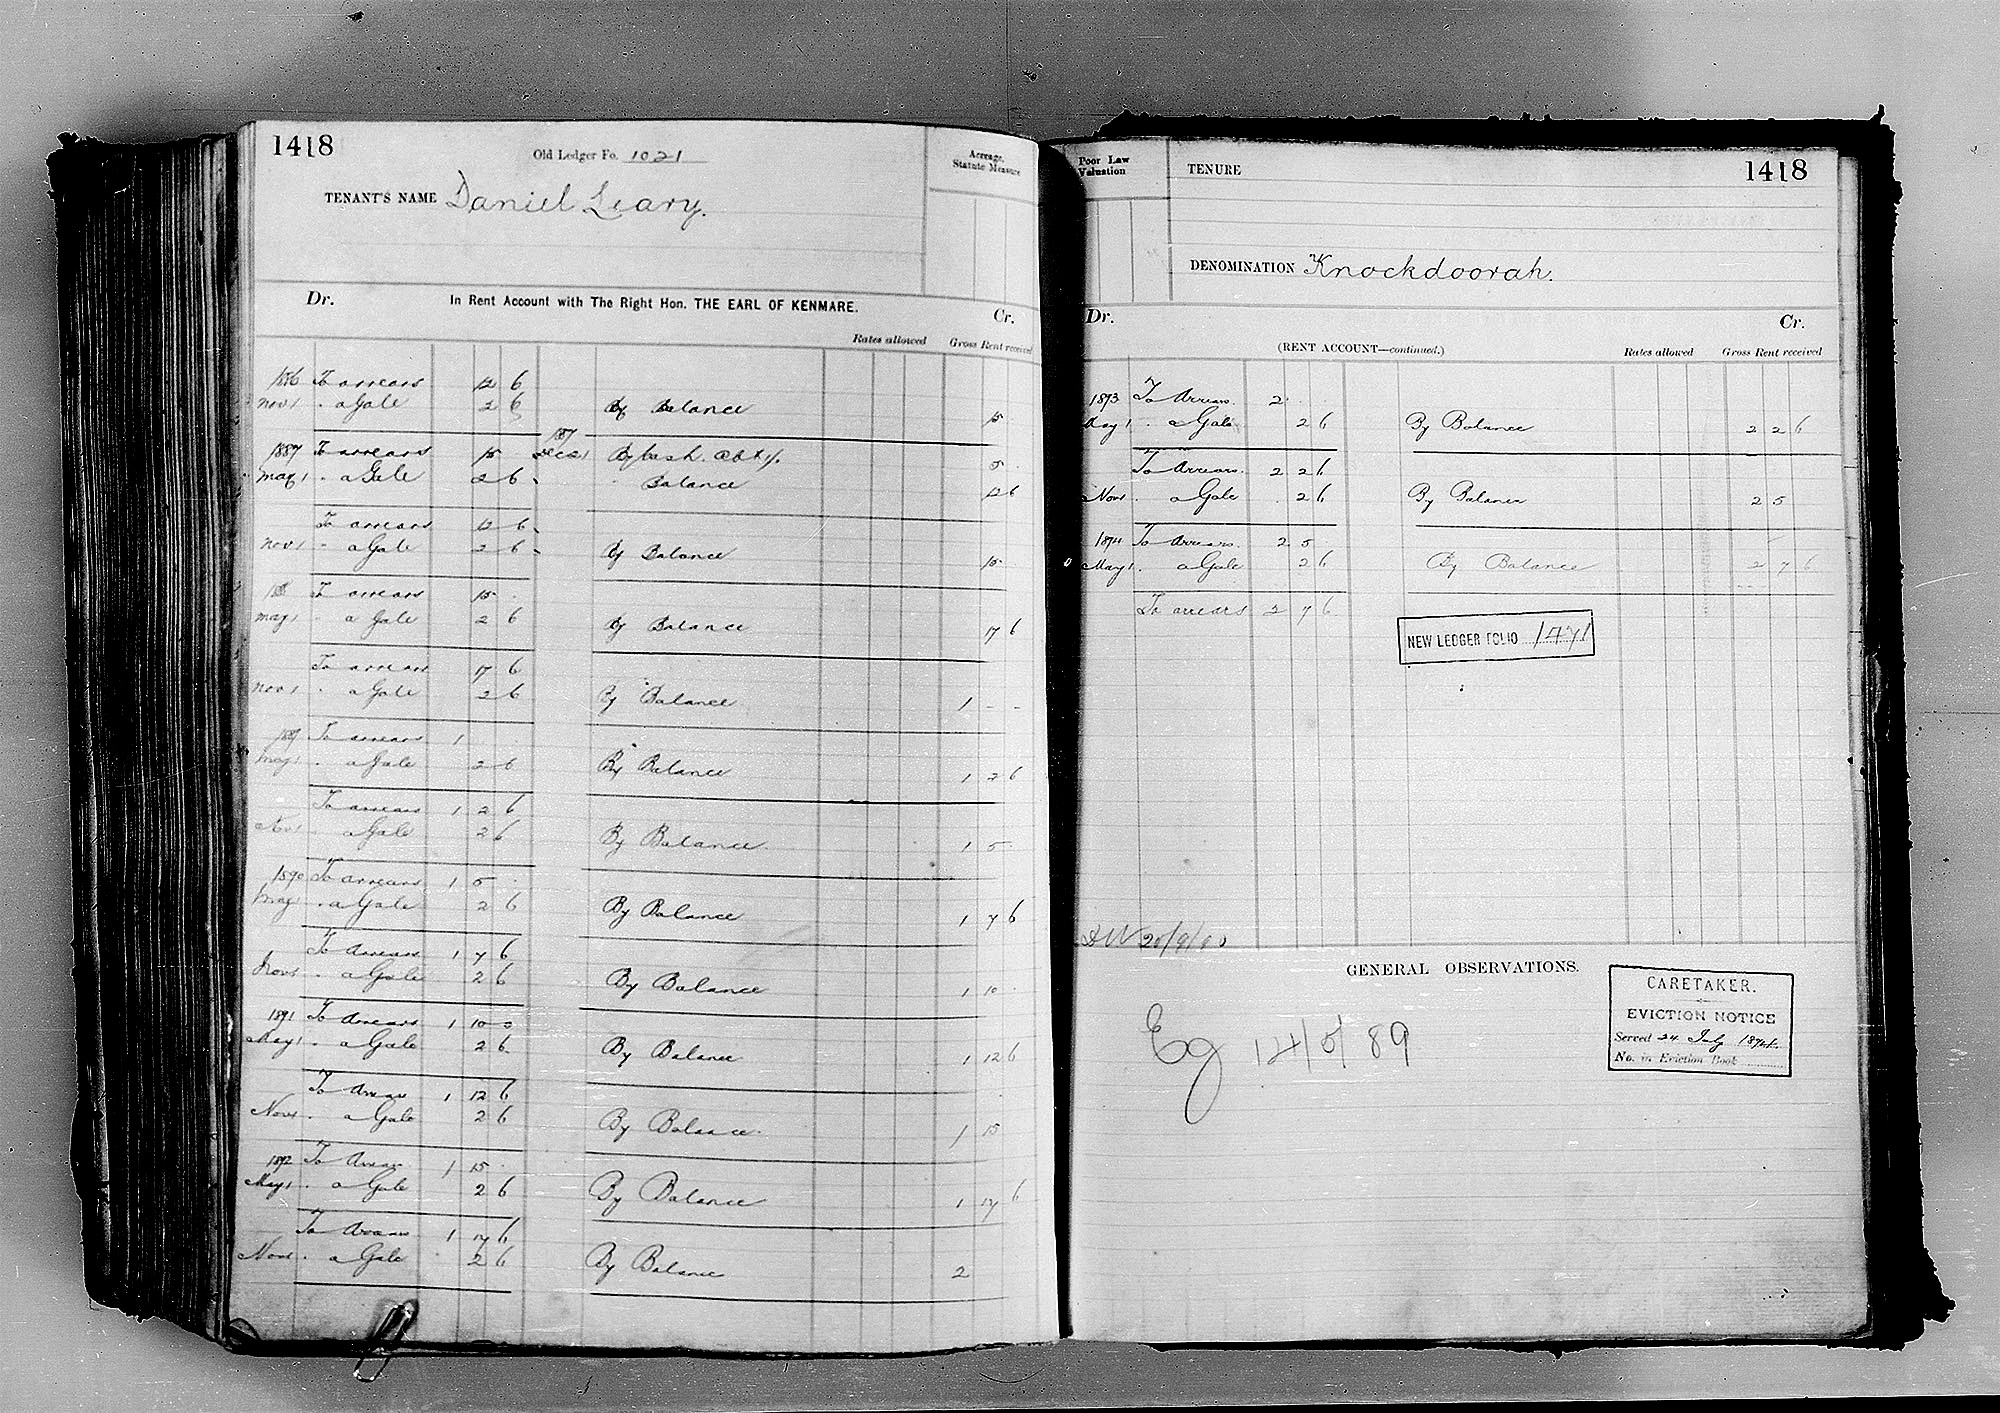 1418
Old Ledger Fo. 1021
Acreage, Statute Measure
TENANT'S NAME Daniel Leary.
Dr. In Rent Account with The Right Hon. THE EARL OF KENMARE. Cr.
Rates allowed Gross Rent received
1886 To arrears 12 6
Nov 1 . a Gale 2 6 By Balance 15
1887 To arrears 15 Dec 21 By Cash. 5
May 1 . a Gale 2 6 Balance 12 6
To arrears 12 6
Nov 1 a Gale 2 6 By Balance 15
To arrears 15
May 1 a Gale 2 6 By Balance 17 6
To arrears 17 6
Nov 1 a Gale 2 6 By Balance 1 - -
To arrears 1
May 1 . a Gale 2 6 By Balance 1 2 6
To arrears 1 2 6
Nov 1 a Gale 2 6 By Balance 1 5
1890 To arrears 1 5
May 1 . a Gale 2 6 By Balance 1 7 6
To Arrears 1 7 6
Nov 1 . a Gale 2 6 By Balance 1 10
1891 To Arrears 1 10 0
May 1 . a Gale 2 6 By Balance 1 12 6
To Arrears 1 12 6
Nov 1 . a Gale 2 6 By Balance 1 15
1892 To Arrears 1 15
May 1 . a Gale 2 6 By Balance 1 17 6
To Arrears 1 17 6
Nov 1 . a Gale 2 6 By Balance 2
Poor Law Valuation
TENURE
1418
DENOMINATION Knockdoorah.
Dr. Cr.
(RENT ACCOUNT—continued.) Rates allowed Gross Rent received
1893 To Arrears 2
May 1 . a Gale 2 6 By Balance 2 2 6
To Arrears. 2 2 6
Nov 1 a Gale 2 6 By Balance 2 5
1894 To Arrears. 2 5
May 1 . a Gale 2 6 By Balance 2 7 6
To arrears 2 7 6
NEW LEDGER FOLIO 1471
GENERAL OBSERVATIONS.
CARETAKER.
EVICTION NOTICE
Served 24 July
No. in Eviction Book